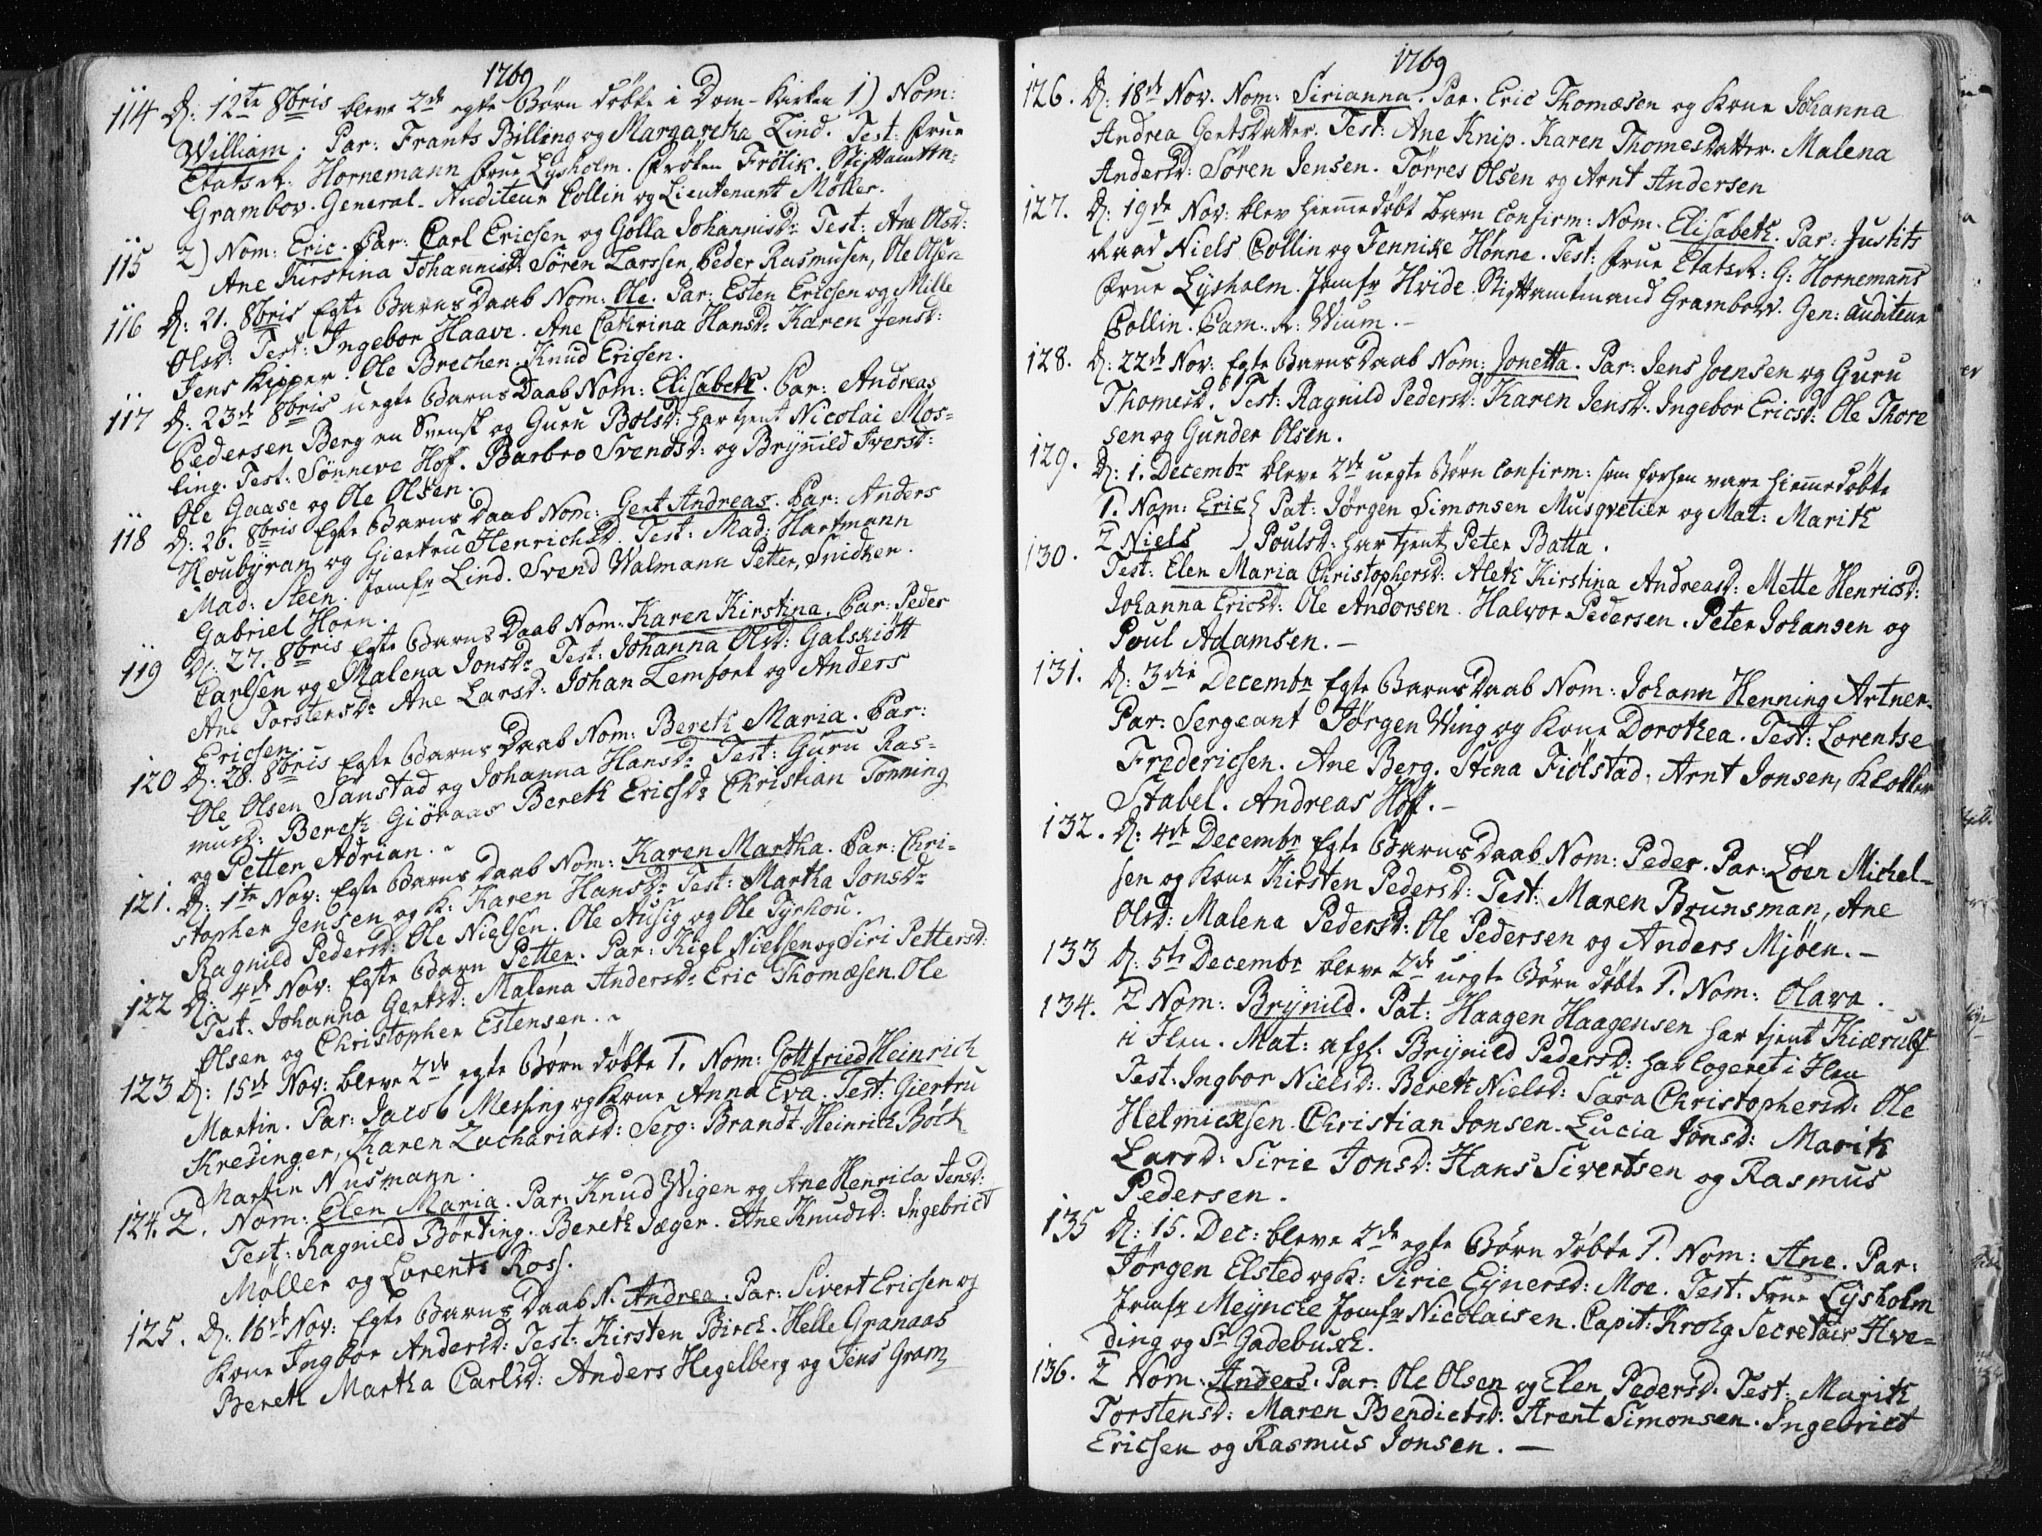 1769
114 D: 12te 8bris bleve 2de egte Børn døbte i Dom-Kirken 1) Nom:
William. Par: Frants Billing og Margaretha Lind. Test: Frue
Etatsr: Hornemann Frue Lysholm. Frøken Frölik. Stiftamtm-
Grambov. General-Auditeur Collin og Lieutenant Møller.
115 2) Nom: Eric. Par: Carl Ericsen og Golla Johannisdr Test: Ane Olsd:
Ane Kirstina Johannisd: Søren Larssen, Peder Rasmusen, Ole Olsen
116 D: 21. 8bris Egte Barns Daab Nom: Ole. Par: Esten Ericsen og Mille
Olsd: Test: Ingebor Haave. Ane Cathrina Hansd: Karen Jensd:
Jens Kipper. Ole Brechen. Knud Ericsen.
117 D: 23de 8bris uegte Barns Daab Nom: Elisabeth. Par: Andreas
Pedersen Berg en Svensk og Guru Bolsd: har tient Nicolai Mos-
ling. Test: Sønneve Hof. Barbro Svendsd: og Brynild Iversd:
Ole Gaase og Ole Olsen.
118 D: 26. 8bris Egte Barns Daab Nom: Gert Andreas. Par: Anders
Houbyran og Giertru Henrichsd. Test: Mad: Hartmann
Mad: Steen. Jomfr Lind. Svend Walmann Petter, Snidker.
Gabriel Horn.
119 D: 27. 8bris Egte Barns Daab Nom: Karen Kirstina. Par: Peder
Carlsen og Malena Jonsdr Test: Johanna Olsd: Galskiøtt
Ane Torstensdr Ane Larsd: Johan Lemfort og Anders
Ericsen.
120 D. 28. 8bris Egte Barns Daab Nom: Bereth Maria. Par:
Ole Olsen Sanstad og Johanna Hansdr Test: Guru Ras-
musd: Bereth Giøraas Bereth Ericsdr Christian Tonning
og Petter Adrian.
121. D: 1te Nov: Egte Barns Daab Nom: Karen Martha. Par: Chri-
stopher Jensen og K: Karen Hansdr Test: Martha Jonsdr
Ragnild Pedersd: Ole Nielsen. Ole Ausig og Ole Pyrhou.
122 D: 4de Nov: Egte Barn Petter. Par: Kiel Nielsen og Siri Pettersd:
Test. Johanna Gertsd: Malena Andersdr Eric Thomæsen. Ole
Olsen og Christopher Estensen.
123 D: 15de Nov: bleve 2de egte Børn døbte 1. Nom: Gottfried Heinrich
Martin. Par: Jacob Messing og Kone Anna Eva. Test: Giertru
Kresinger, Karen Zachariasd: Serg: Brandt. Heinrich Bock
Martin Nusmann.
124. 2. Nom: Elen Maria. Par: Knud Wigen og Ane Henrica Jensd:
Test: Ragnild Børting. Bereth Jæger. Ane Knudsd: Ingebrict
Møller og Lorents Ross.
125. D: 16de Nov: Egte Barns Daab N. Andrea. Par: Sivert Ericsen og
Kone Ingbor Andersd: Test: Kirsten Birch. Helle Granaas
Bereth Martha Carlsd: Anders Hegelberg og Jens Gram
1769
126. D: 18de Nov. Nom: Sirianna. Par. Eric Thomæsen og Kone Johanna
Andrea Gertsdatter. Test: Ane Knip. Karen Thomesdatter. Malena
Andersd: Søren Jensen. Törres Olsen og Arnt Andersen
127. D: 19de Nov: blev hiemmedøbt Barn Confirm: Nom. Elisabeth. Par: Justits
Raad Niels Collin og Jennike Hønne. Test: Frue Etatsr: G: Hornemans
Frue Lysholm. Jomfr Hvide. Stiftamtmand Grambow. Gen: Auditeur
Collin. Cam: R: Wium. -
128. D: 22de Nov: Egte Barns Daab Nom: Jonetta. Par: Jens Joensen og Guru
Thomesd. Test: Ragnild Pedersd: Karen Jensd. Ingebor Ericsd: Ole Thore
sen og Gunder Olsen.
129. D: 1. Decembr bleve 2de uegte Børn Confirm: som forhen vare hiemmedøbte
1. Nom: Eric } Pat: Jørgen Simonsen Musqvetier og Mat: Marith
130. 2 Niels } Poulsd: har tient Peter Batta.
Test: Elen Maria Christophersd: Aleth Kirstina Andreasd: Mette Henricsd:
Johanna Ericsd: Ole Andorsen. Halvor Pedersen. Peter Johansen og
Poul Adamsen. -
131. D: 3die Decembr Egte Barns Daab Nom: Johann Henning Artner.
Par: Sergeant Jørgen Wing og Kone Dorothea. Test: Lorentse
Fredericsen. Ane Berg. Stina Fiølstad. Arnt Jonsen, Klokker
Stabel. Andreas Hoff. -
132. D: 4de Decembr Egte Barns Daab Nom: Peder. Par: Loen Michel-
sen og Kone Kirsten Pedersd: Test: Maren Brunsman, Ane
Olsd: Malena Pedersd: Ole Pedersen og Anders Mjøen. -
133 D: 5te Decembr bleve 2de uegte Børn døbte 1. Nom: Olava.
134. 2 Nom: Brynild. Pat: Haagen Haagensen har tient Kiærulf
i Ilen. Mat: afg: Brynild Pedersd: har logeret i Ilen
Test: Ingbor Nielsd: Bereth Nielsd: Sara Christophersd: Ole
Helmicksen. Christian Jonsen. Lucia Jonsd: Marith
Larsd: Sirie Jonsd: Hans Sivertsen og Rasmus
Pedersen.
135 D: 15. Dec: bleve 2de egte Børn døbte 1. Nom: Ane. Par:
Jørgen Elsted og K: Sirie Ejnersd: Moe. Test: Frue Lysholm
Jomfr Meyncke Jomfr Nicolaisen. Capit: Krohg Secretair Hve-
ding og Sr Gadebusch.
136. 2 Nom. Anders. Par: Ole Olsen og Elen Pedersd. Test: Marith
Torstensd: Maren Bendictsd: Arent Simonsen. Ingebrict
Ericsen og Rasmus Jonsen. -